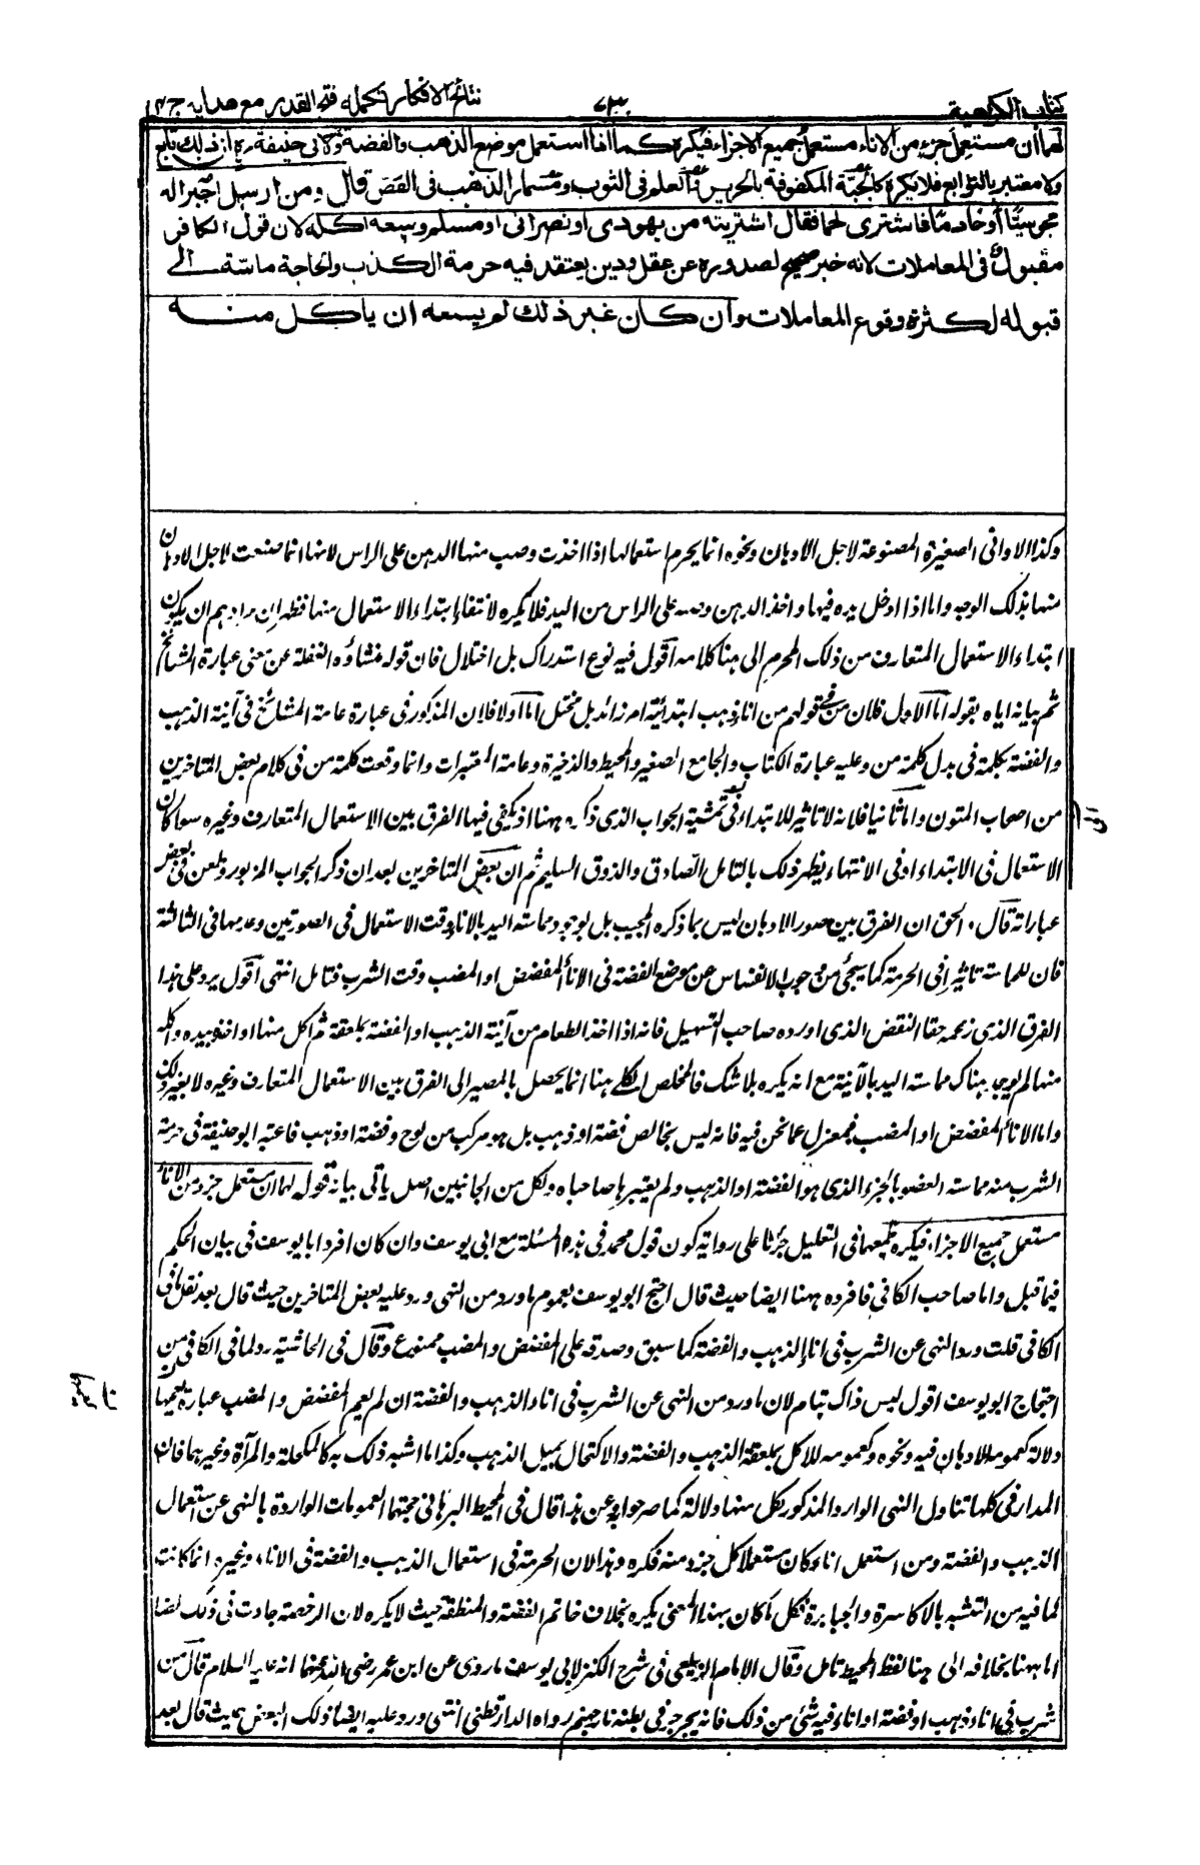 كتاب الكراهية ٧٣٠ نتائج الافكار تكمله فتح القدير مع هدايه ج ٤
لهما ان مستعمل جزء من الاناء مستعمل جميع الاجزاء فيكره كما اذا استعمل موضع الذهب والفضة ولابى حنيفة رح ان ذلك تابع
ولا معتبر بالتوابع فلا يكره كالجبة المكفوفة بالحرير والعلم فى الثوب ومسمار الذهب فى الفص قال ومن ارسل اجيرا له
مجوسيّا او خادما فاشترى لحما فقال اشتريته من يهودى او نصرانى او مسلم وسعه اكله لان قول الكافر
مقبول فى المعاملات لانه خبر صحيح لصدوره عن عقل ودين يعتقد فيه حرمة الكذب والحاجة ماسّة الى
قبوله لكثرة وقوع المعاملات وان كان غير ذلك لم يسعه ان ياكل منه
وكذا الاوانى الصغيرة المصنوعة لاجل الادهان ونحوه انما يحرم استعمالها اذا اخذت وصب منها الدهن على الراس لانها انما صنعت لاجل الادهان
منها بذلك الوجه واما اذا ادخل يده فيها واخذ الدهن وصبه على الراس من اليد فلا يكره لانتفاء ابتداء الاستعمال منها فظهر ان مرادهم ان يكون
ابتداء الاستعمال المتعارف من ذلك المحرم الى هنا كلامه اقول فيه نوع استدراك بل اختلال فان قوله منشاؤه الغفلة عن معنى عبارة المشائخ
ثم بيانه اياه بقوله اما الاول فلان من فى قولهم من اناء ذهب ابتدائية امر زائد بل مختل اما اولا فلان المذكور فى عبارة عامة المشائخ فى آنية الذهب
والفضة بكلمة فى بدل كلمة من وعليه عبارة الكتاب والجامع الصغير والمحيط والذخيرة وعامة المعتبرات وانما وقعت كلمة من فى كلام بعض المتاخرين
من اصحاب المتون واما ثانيا فلانه لا تاثير للابتداء فى تمشية الجواب الذى ذكره ههنا اذ يكفى فيها الفرق بين الاستعمال المتعارف وغيره سواء كان
الاستعمال فى الابتداء او فى الانتهاء يظهر ذلك بالتامل الصادق والذوق السليم ثم ان بعض المتاخرين بعد ان ذكر الجواب المزبور وطعن فى بعض
عباراته قال الحق ان الفرق بين صور الادهان ليس بما ذكره المجيب بل بوجود مماسة اليد بالاناء وقت الاستعمال فى الصورتين وعدمها فى الثالثة
فان للمماسة تاثيرا فى الحرمة كما سيجئ من وجوب الاتقاء عن موضع الفضة فى الاناء المفضض او المضبب وقت الشرب فتامل انتهى اقول يرد على هذا
الفرق الذى زعمه حقا النقض الذى اورده صاحب التسهيل فانه اذا اخذ الطعام من آنية الذهب او الفضة بملعقة ثم اكل منها او اخذ بيده واكله
منها لم يوجد هناك مماسة اليد بالآنية مع انه يكره بلا شك فالمخلص الكلى هنا انما يحصل بالمصير الى الفرق بين الاستعمال المتعارف وغيره لا بغير ذلك
واما الاناء المفضض او المضبب فبمعزل عما نحن فيه فانه ليس بخالص فضة او ذهب بل هو مركب من لوح وفضة او ذهب فاعتبر ابو حنيفة فى حرمة
الشرب منه مماسة العضو بالجزء الذى هو الفضة او الذهب ولم يعتبرها صاحباه ولكل من الجانبين اصل ياتى بيانه قوله لهما ان مستعمل جزء من الاناء
مستعمل جميع الاجزاء فيكره جمعهما فى التعليل جريا على رواية كون قول محمد فى هذه المسئلة مع ابى يوسف وان كان افرد ابا يوسف فى بيان الحكم
فيما قبل واما صاحب الكافى فافرده ههنا ايضا حيث قال احتج ابو يوسف بعموم ما ورد من النهى ورد عليه بعض المتاخرين حيث قال بعد نقل ما فى
الكافى قلت ورد النهى عن الشرب فى اناء الذهب والفضة كما سبق وصدقه على المفضض والمضبب ممنوع وقال فى الحاشية رد لما فى الكافى من
احتجاج ابو يوسف اقول ليس ذاك بتام لان ما ورد من النهى عن الشرب فى اناء الذهب والفضة ان لم يعم المفضض والمضبب عبارة يعمهما
دلالة كعمومه للادهان فيه ونحوه وكعمومه للاكل بملعقة الذهب والفضة والاكتحال بميل الذهب وكذا ما اشبه ذلك به كالمكحلة والمرآة وغيرهما فان
المدار فى كلها تناول النهى الوارد المذكور لكل منها دلالة كما صرحوا به وعن هذا قال فى المحيط البرهانى حجتهما العمومات الواردة بالنهى عن استعمال
الذهب والفضة ومن استعمل اناء كان مستعملا كل جزء منه فكره وهذا لان الحرمة فى استعمال الذهب والفضة فى الاناء وغيره انما كانت
لما فيه من التشبه بالاكاسرة والجبابرة فكل ما كان بهذا المعنى يكره بخلاف خاتم الفضة والمنطقة حيث لا يكره لان الرخصة جاءت فى ذلك نصا
اما ههنا بخلافه الى هنا لفظ المحيط تامل وقال الامام الزيلعى فى شرح الكنز لابى يوسف ما روى عن ابن عمر رضى الله عنهما انه عليه السلام قال من
شرب فى اناء ذهب او فضة او اناء فيه شئ من ذلك فانما يجرجر فى بطنه نار جهنم رواه الدارقطنى انتهى ورد عليه ايضا ذلك البعض حيث قال بعد